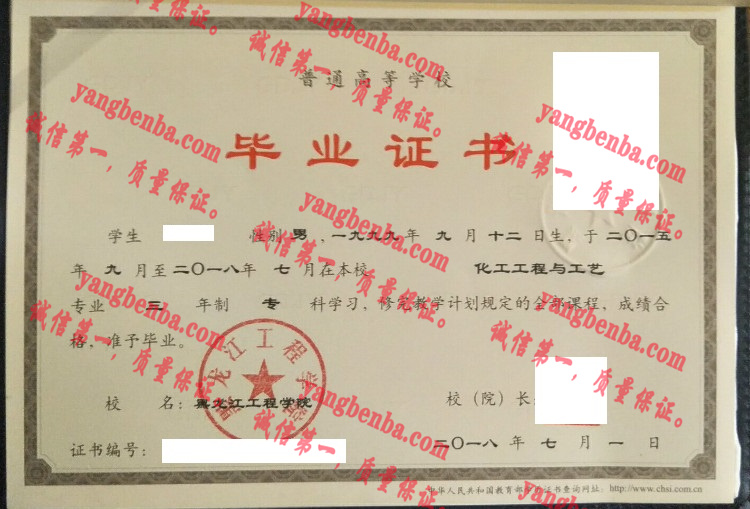 普通高等学校
毕业证书
学生 性别 男 ，一九九九年 九 月 十二 日生，于 二〇一五
年 九 月至 二〇一八年 七 月在本校 化工工程与工艺
专业 三 年制 专 科学习，修完教学计划规定的全部课程，成绩合
格，准予毕业。
校 名：黑龙江工程学院
校（院）长：
证书编号：
二〇一八 年 七 月 一 日
中华人民共和国教育部学历证书查询网址：http://www.chsi.com.cn
黑龙江工程学院
yangbenba.com
诚信第一，质量保证。
yangbenba.com
诚信第一，质量保证。
yangbenba.com
诚信第一，质量保证。
yangbenba.com
诚信第一，质量保证。
yangbenba.com
诚信第一，质量保证。
yangbenba.com
诚信第一，质量保证。
yangbenba.com
诚信第一，质量保证。
yangbenba.com
诚信第一，质量保证。
yangbenba.com